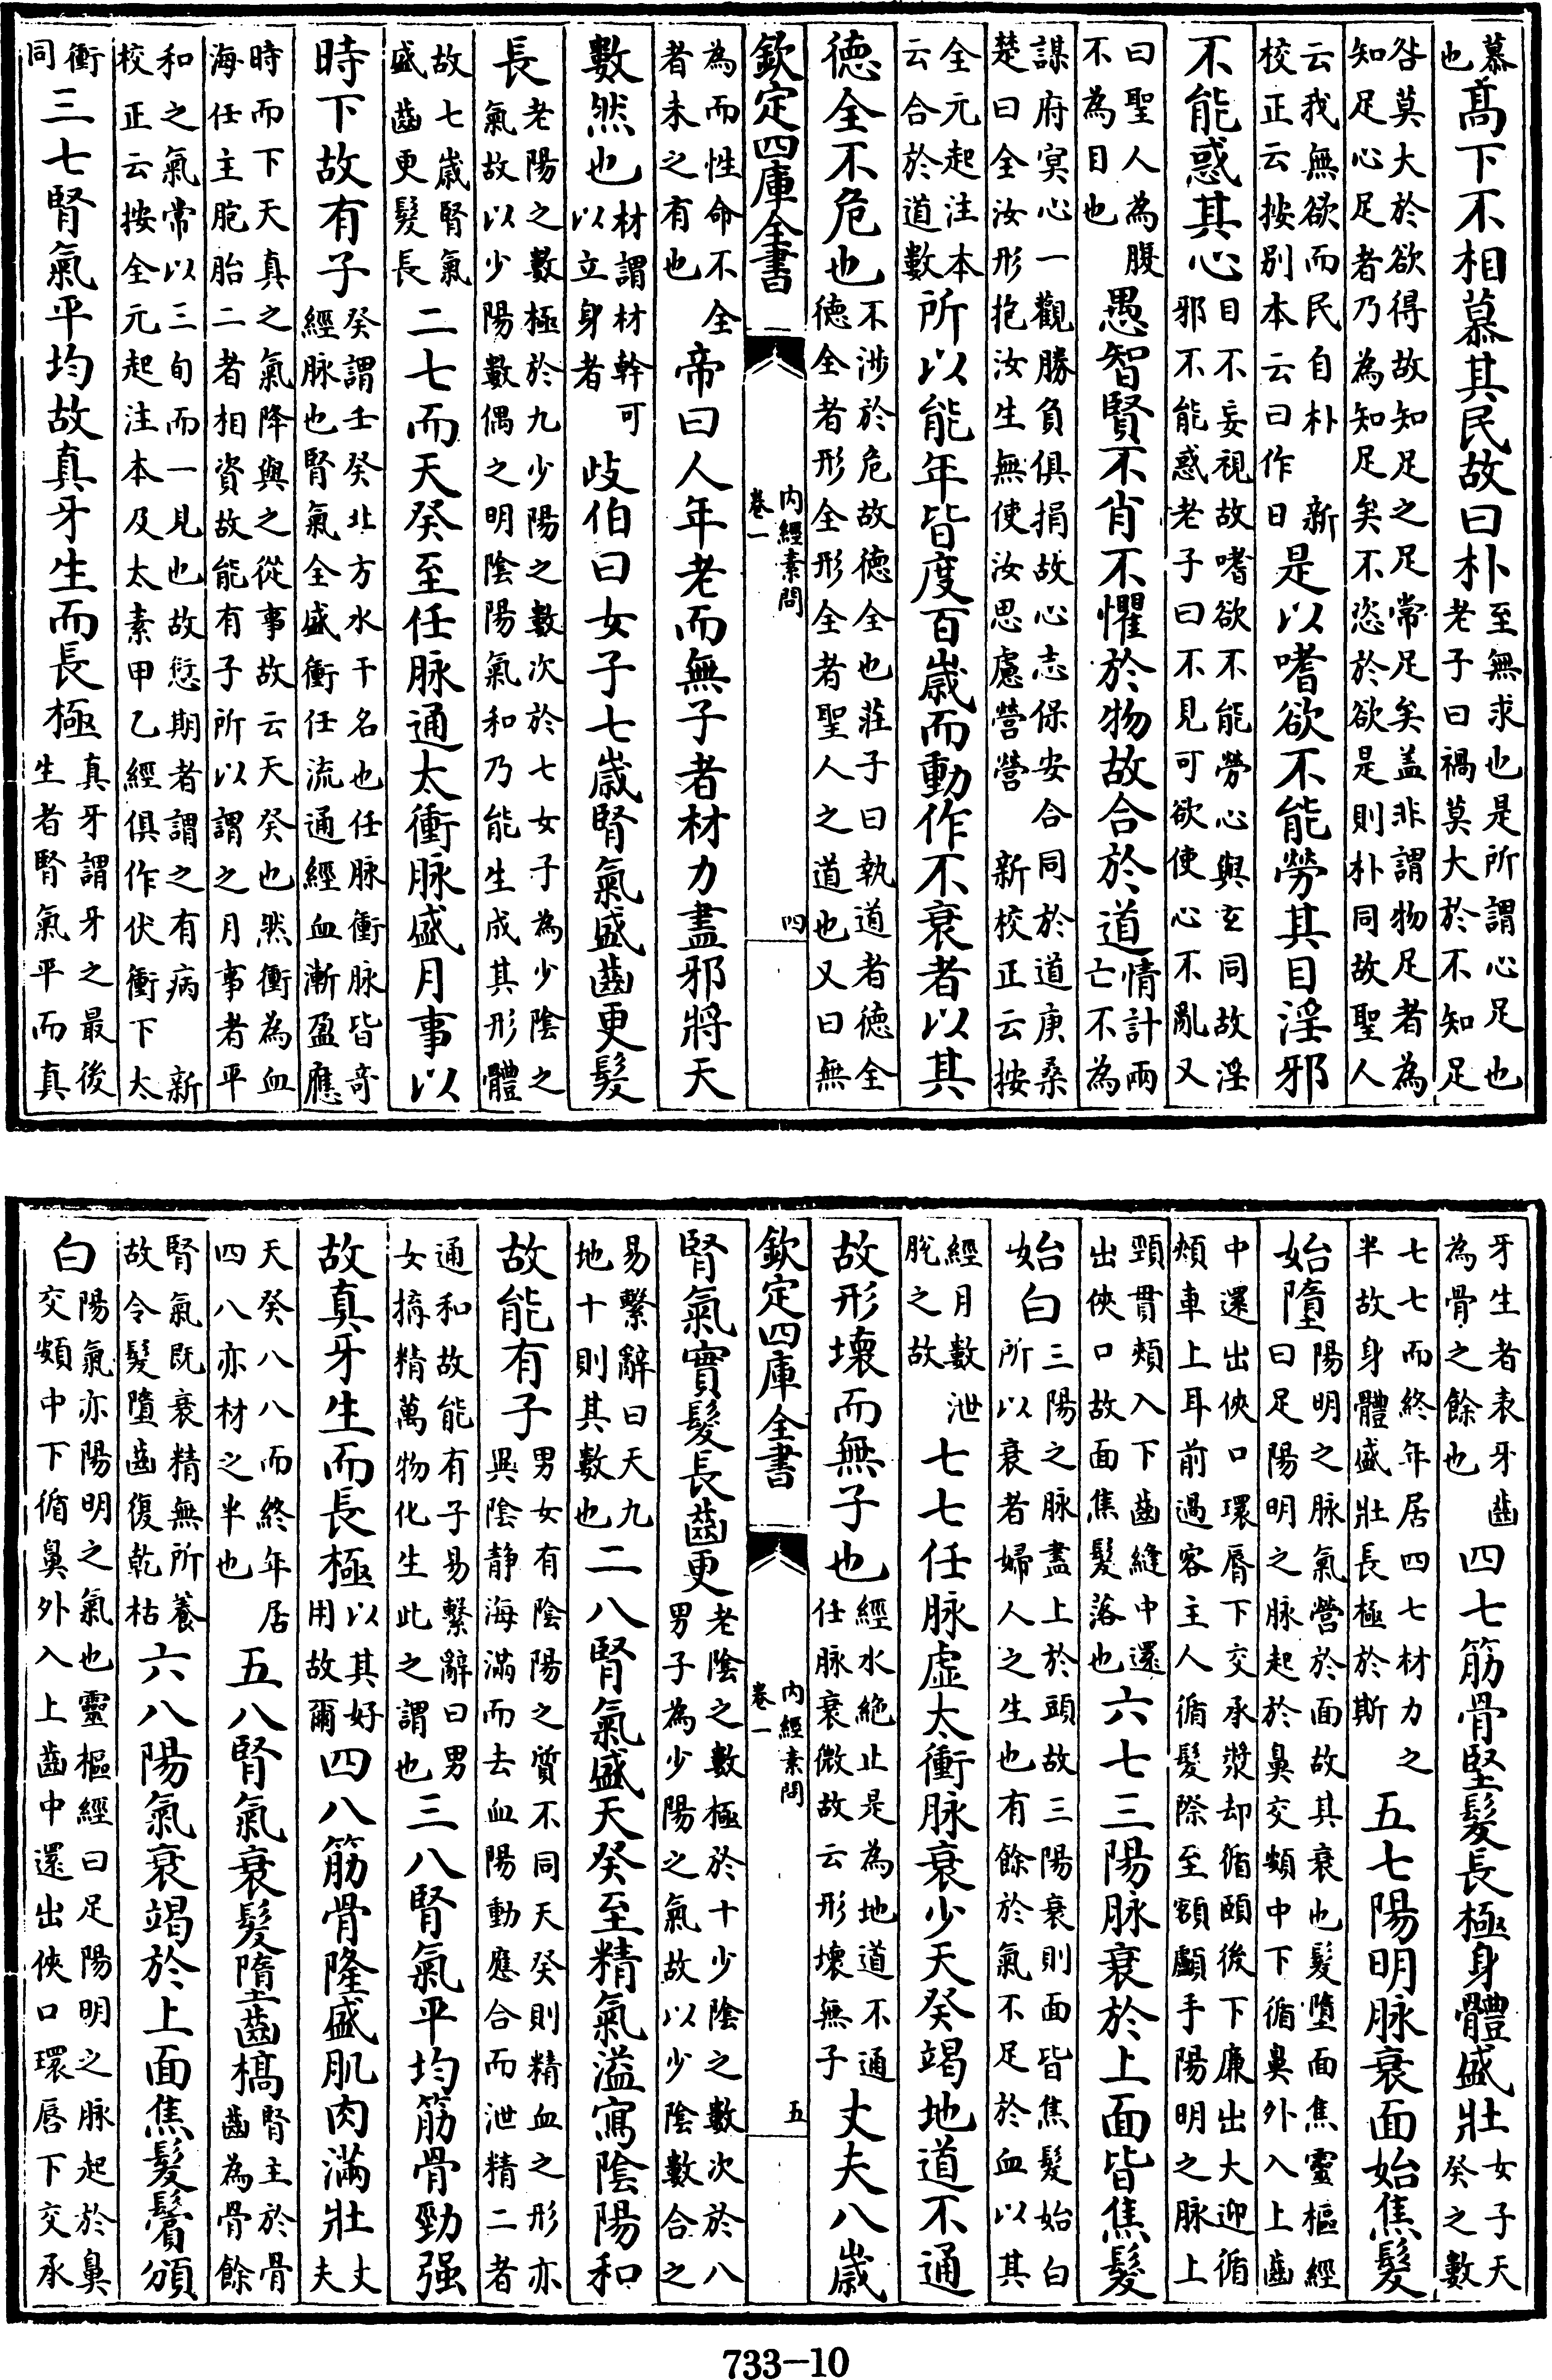 慕也高下不相慕其民故曰朴至無求也是所謂心足也老子曰禍莫大於不知足
咎莫大於欲得故知足之足常足矣盖非謂物足者為知足心足者乃為知足矣不恣於欲是則朴同故聖人
云我無欲而民自朴 新校正云按别本云曰作日是以嗜欲不能勞其目淫邪
不能惑其心目不妄視故嗜欲不能勞心與玄同故淫邪不能惑老子曰不見可欲使心不亂又
曰聖人為腹不為目也愚智賢不肖不懼於物故合於道情計兩亡不為
謀府冥心一觀勝負俱捐故心志保安合同於道庚桑楚曰全汝形抱汝生無使汝思慮營營 新校正云按
全元起注本云合於道數所以能年皆度百歲而動作不衰者以其
德全不危也不涉於危故德全也莊子曰執道者德全德全者形全形全者聖人之道也又曰無
欽定四庫全書 內經素問 卷一 四
為而性命不全者未之有也帝曰人年老而無子者材力盡邪將天
數然也材謂材幹可以立身者歧伯曰女子七歲腎氣盛齒更髮
長老陽之數極於九少陽之數次於七女子為少陰之氣故以少陽數偶之明陰陽氣和乃能生成其形體
故七歲腎氣盛齒更髮長二七而天癸至任脉通太衝脉盛月事以
時下故有子癸謂壬癸北方水干名也任脉衝脉皆奇經脉也腎氣全盛衝任流通經血漸盈應
時而下天真之氣降與之從事故云天癸也然衝為血海任主胞胎二者相資故能有子所以謂之月事者平
和之氣常以三旬而一見也故愆期者謂之有病 新校正云按全元起注本及太素甲乙經俱作伏衝下太
衝同三七腎氣平均故真牙生而長極真牙謂牙之最後生者腎氣平而真
牙生者表牙齒為骨之餘也四七筋骨堅髮長極身體盛壯女子天癸之數
七七而終年居四七材力之半故身體盛壯長極於斯五七陽明脉衰面始焦髮
始墮陽明之脉氣營於面故其衰也髮墮面焦靈樞經曰足陽明之脉起於鼻交頞中下循鼻外入上齒
中還出俠口環脣下交承漿却循頤後下廉出大迎循頰車上耳前過客主人循髮際至額顱手陽明之脉上
頸貫頰入下齒縫中還出俠口故面焦髮落也六七三陽脉衰於上面皆焦髮
始白三陽之脉盡上於頭故三陽衰則面皆焦髮始白所以衰者婦人之生也有餘於氣不足於血以其
經月數泄脫之故七七任脉虛太衝脉衰少天癸竭地道不通
故形壞而無子也經水絶止是為地道不通任脉衰微故云形壞無子丈夫八歲
欽定四庫全書 內經素問 卷一 五
腎氣實髮長齒更老陰之數極於十少陰之數次於八男子為少陽之氣故以少陰數合之
易繫辭曰天九地十則其數也二八腎氣盛天癸至精氣溢寫陰陽和
故能有子男女有陰陽之質不同天癸則精血之形亦異陰静海滿而去血陽動應合而泄精二者
通和故能有子易繫辭曰男女搆精萬物化生此之謂也三八腎氣平均筋骨勁强
故真牙生而長極以其好用故爾四八筋骨隆盛肌肉滿壯丈夫
天癸八八而終年居四八亦材之半也五八腎氣衰髮墮齒槁腎主於骨齒為骨餘
腎氣既衰精無所養故令髮墮齒復乾枯六八陽氣衰竭於上面焦髮鬢頒
白陽氣亦陽明之氣也靈樞經曰足陽明之脉起於鼻交頞中下循鼻外入上齒中還出俠口環脣下交承
733-10